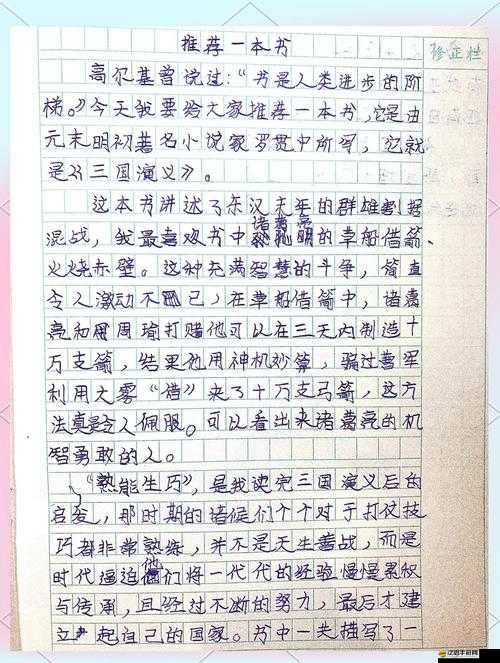 推荐一本书
修正栏
高尔基曾说过:“书是人类进步的阶
梯。”今天我要给大家推荐一本书,它是由
元末明初著名小说家罗贯中所写,它就
是《三国演义》。
这本书讲述了东汉末年的群雄割据
混战,我最喜欢书中诸葛亮的草船借箭、
火烧赤壁。这种充满智慧的斗争,简直
令人激动不已,在草船借箭中,诸葛
亮和周瑜打赌他可以在三天内制造十
万支箭,结果他用神机妙算,骗过曹军
利用大雾“借”来了十万支弓箭,这方
法真是令人佩服。可以看出来诸葛亮的机
智勇敢的人。
“熟能生巧”,是我读完三国演义后的
启发,那时期的诸候们个个对于打仗技
巧都非常熟练,并不是天生善战,而是
时代逼迫他们将一代代的经验慢慢累积
与传承,且经过不断的努力,最后才建
立起自己的国家。书中一共描写了一